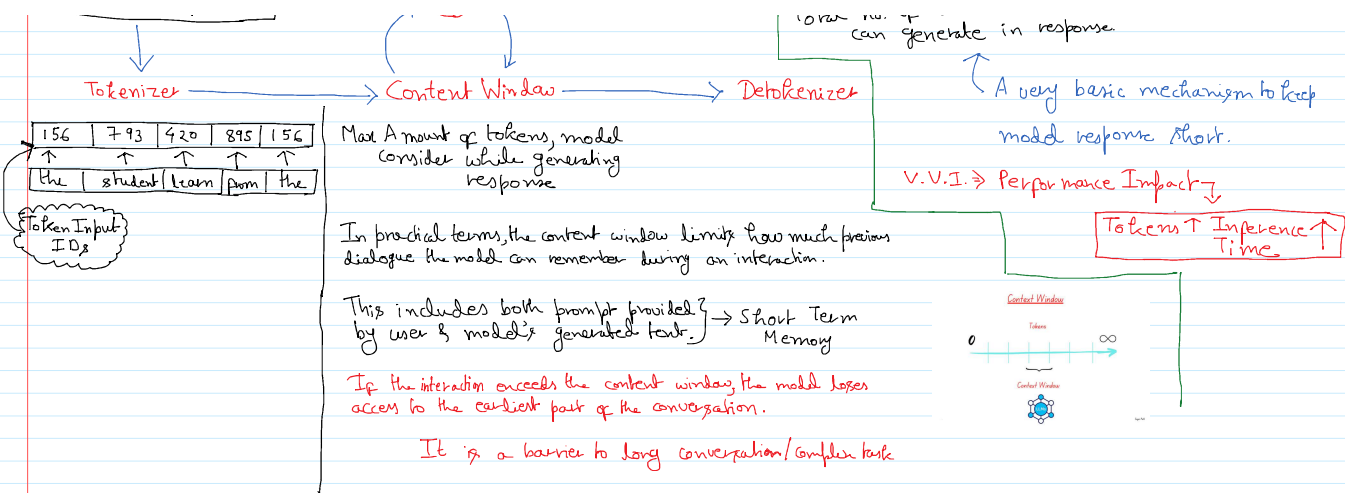 can generate in response.
Tokenizer
Content Window
Detokenizer
A very basic mechanism to keep
model response short.
156 793 420 895 156
the student learn from the
Token Input
IDs
Max Amount of tokens, model
consider while generating
response
V.V.I. ⇒ Performance Impact
Tokens ↑ Inference ↑
Time
In practical terms, the content window limits how much previous
dialogue the model can remember during an interaction.
This includes both prompt provided
by user & model's generated text.
→ Short Term
Memory
If the interaction exceeds the content window, the model loses
access to the earliest part of the conversation.
It is a barrier to long conversation/complex task
Context Window
Tokens
0 ∞
Context Window